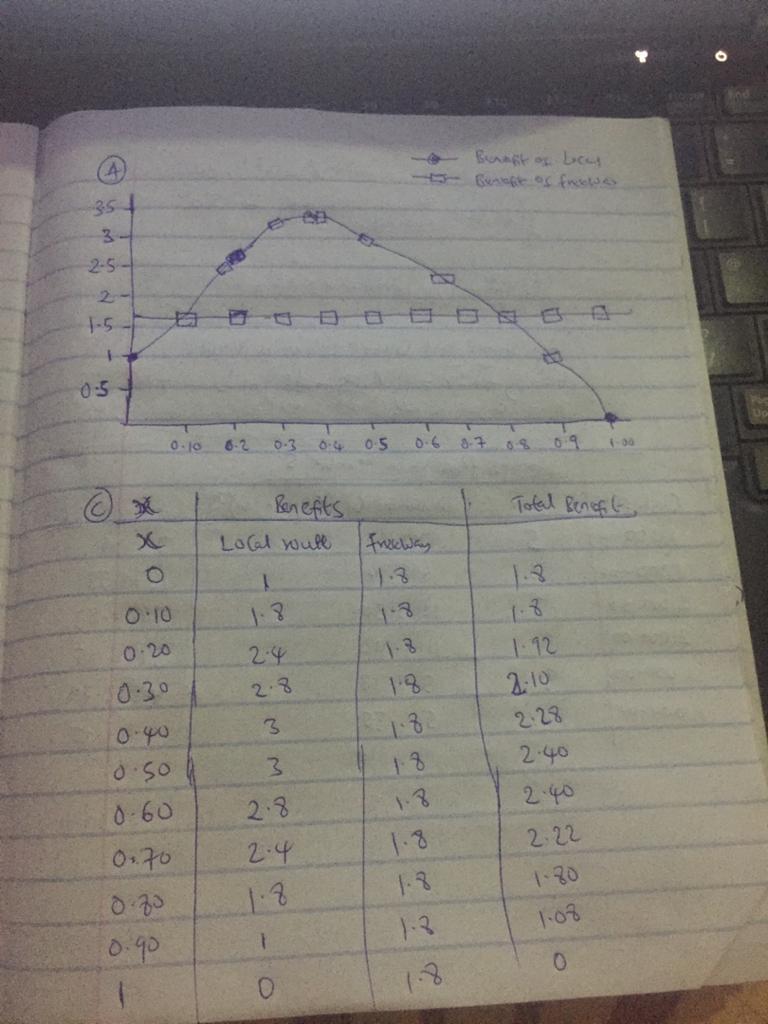 A
Benefit of Local
Benefit of freeway
3.5
3
2.5
2
1.5
1
0.5
0.10 0.2 0.3 0.4 0.5 0.6 0.7 0.8 0.9 1.00
C x Benefits Total Benefit
x Local route freeway
0 1 1.8 1.8
0.10 1.8 1.8 1.8
0.20 2.4 1.8 1.92
0.30 2.8 1.8 2.10
0.40 3 1.8 2.28
0.50 3 1.8 2.40
0.60 2.8 1.8 2.40
0.70 2.4 1.8 2.22
0.80 1.8 1.8 1.80
0.90 1 1.8 1.08
1 0 1.8 0